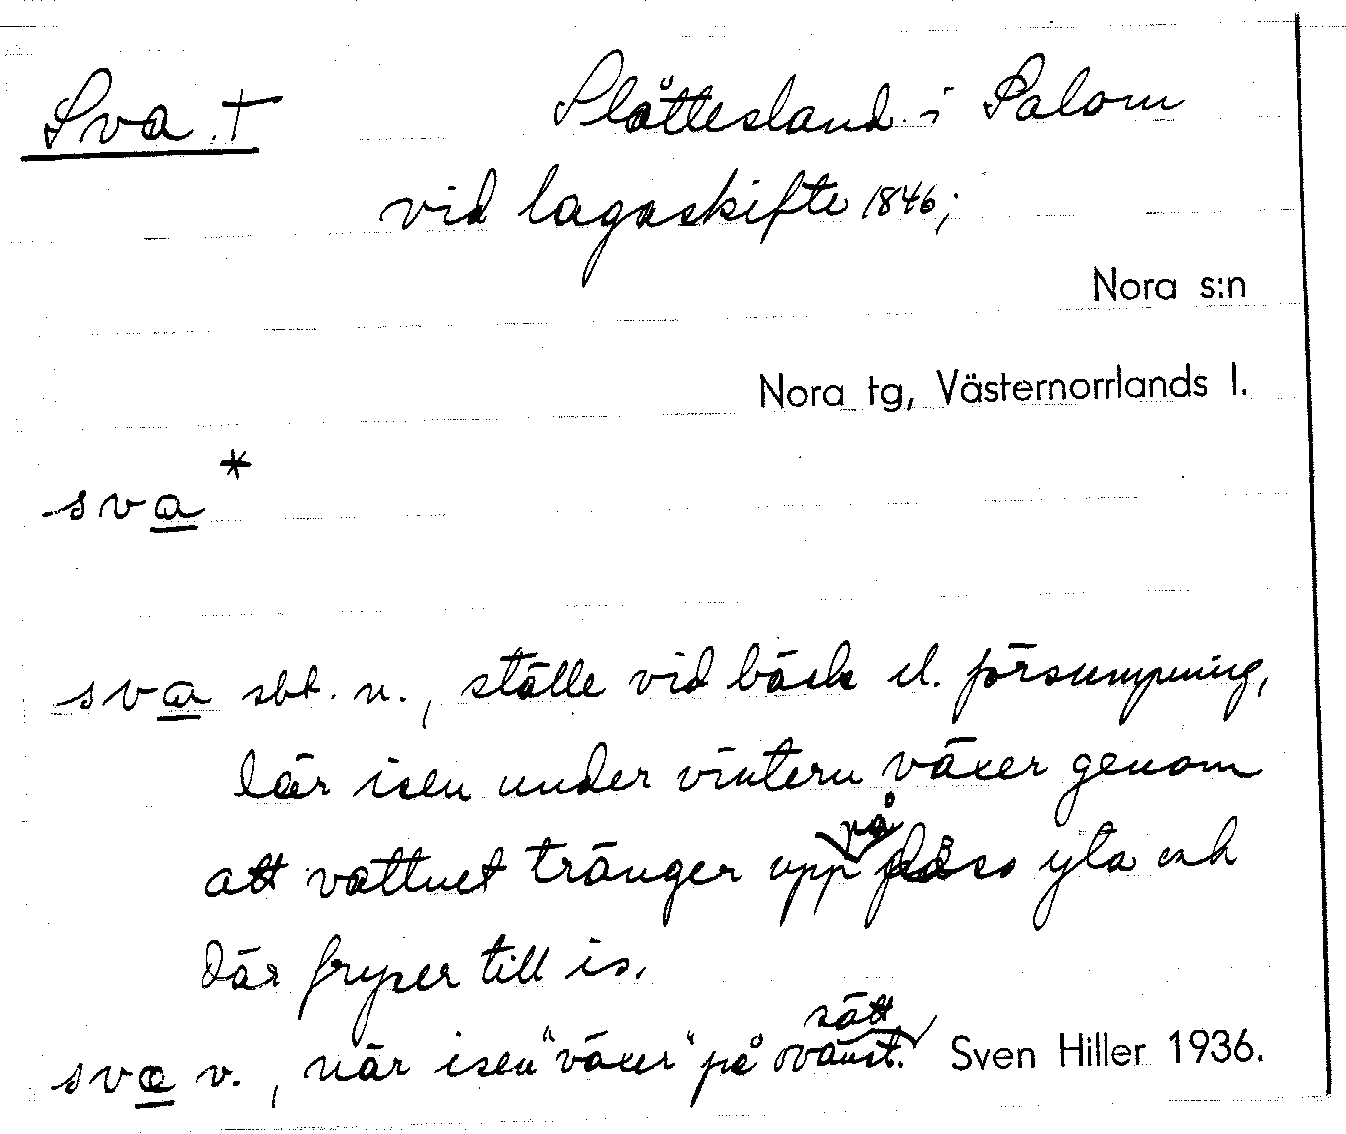 Sva. † Slåttesland i Salom
vid lagaskifte 1846;
Nora s:n
Nora tg, Västernorrlands l.
sva *
sva sbt. n., ställe vid bäck el. försumpning,
där isen under vintern växer genom
att vattnet tränger upp på dess yta och
där fryser till is.
sva v., när isen "växer" på ovanst. sätt. Sven Hiller 1936.